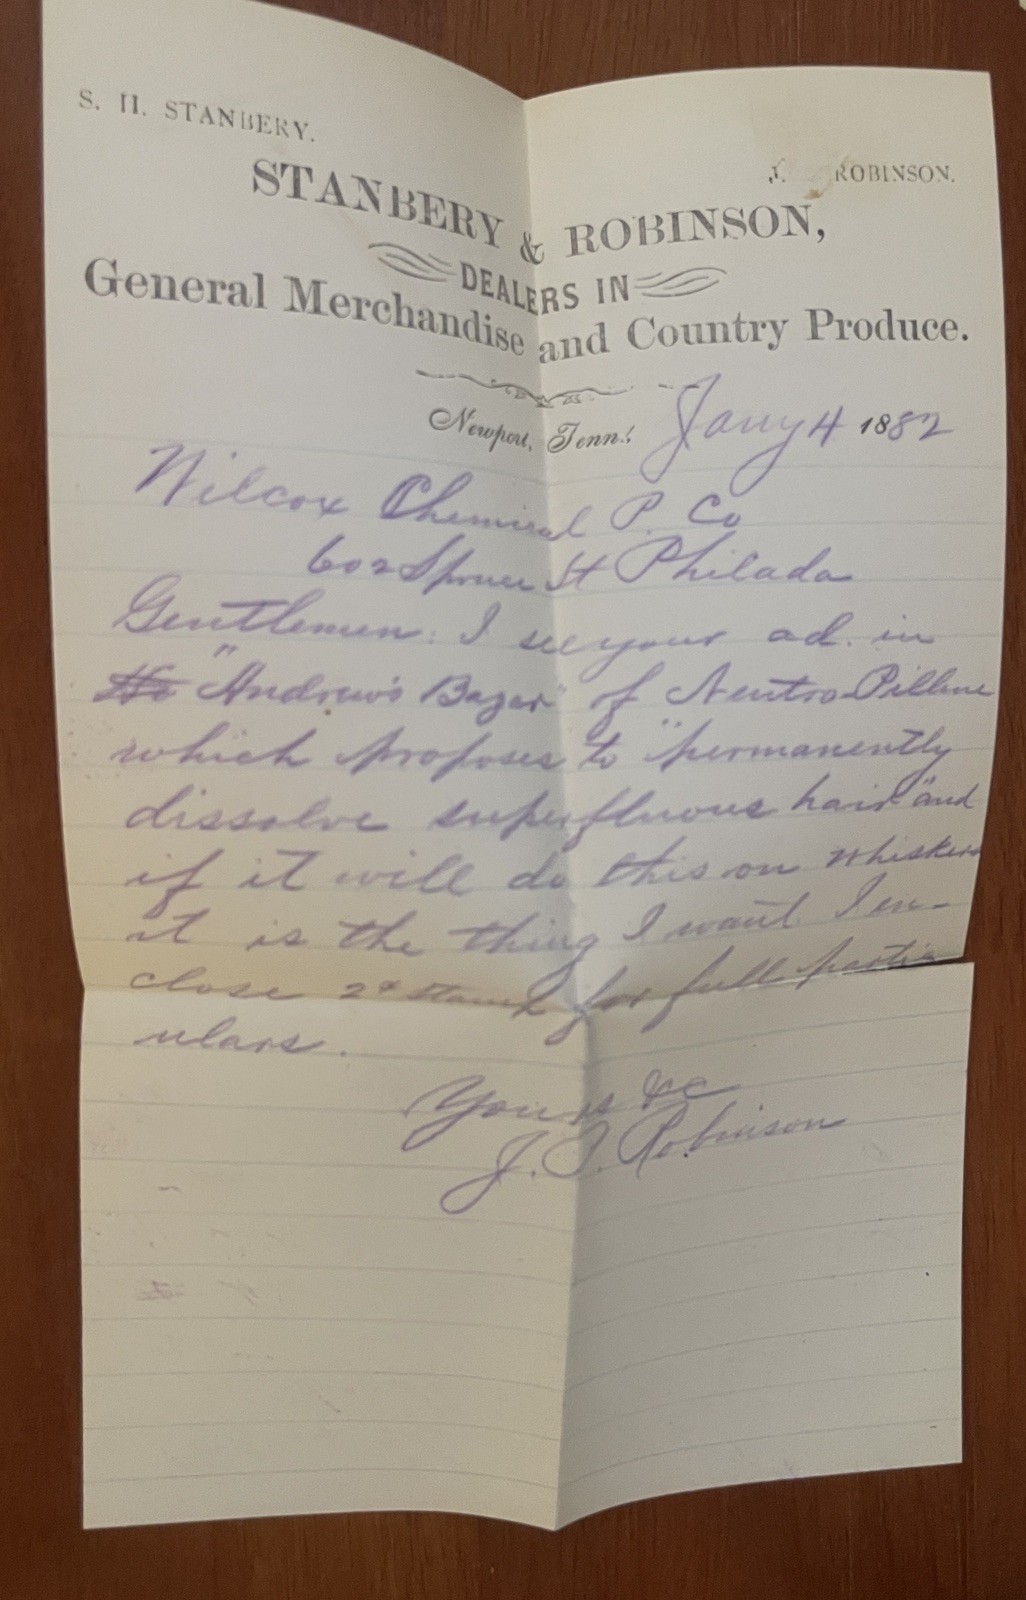 S. H. STANBERY.
J. ROBINSON.
STANBERY & ROBINSON,
DEALERS IN
General Merchandise and Country Produce.
Newport, Tenn. Jany 4 1882
Wilcox Chemical P. Co
602 Spruce St Philada
Gentlemen: I see your ad. in
the "Andrew's Bazar" of Neutro-Pillene
which proposes to "permanently
dissolve superfluous hair" and
if it will do this on whiskers
it is the thing I want. I en-
close 2¢ stamp for full partic
ulars.
Yours &c
J. T. Robinson